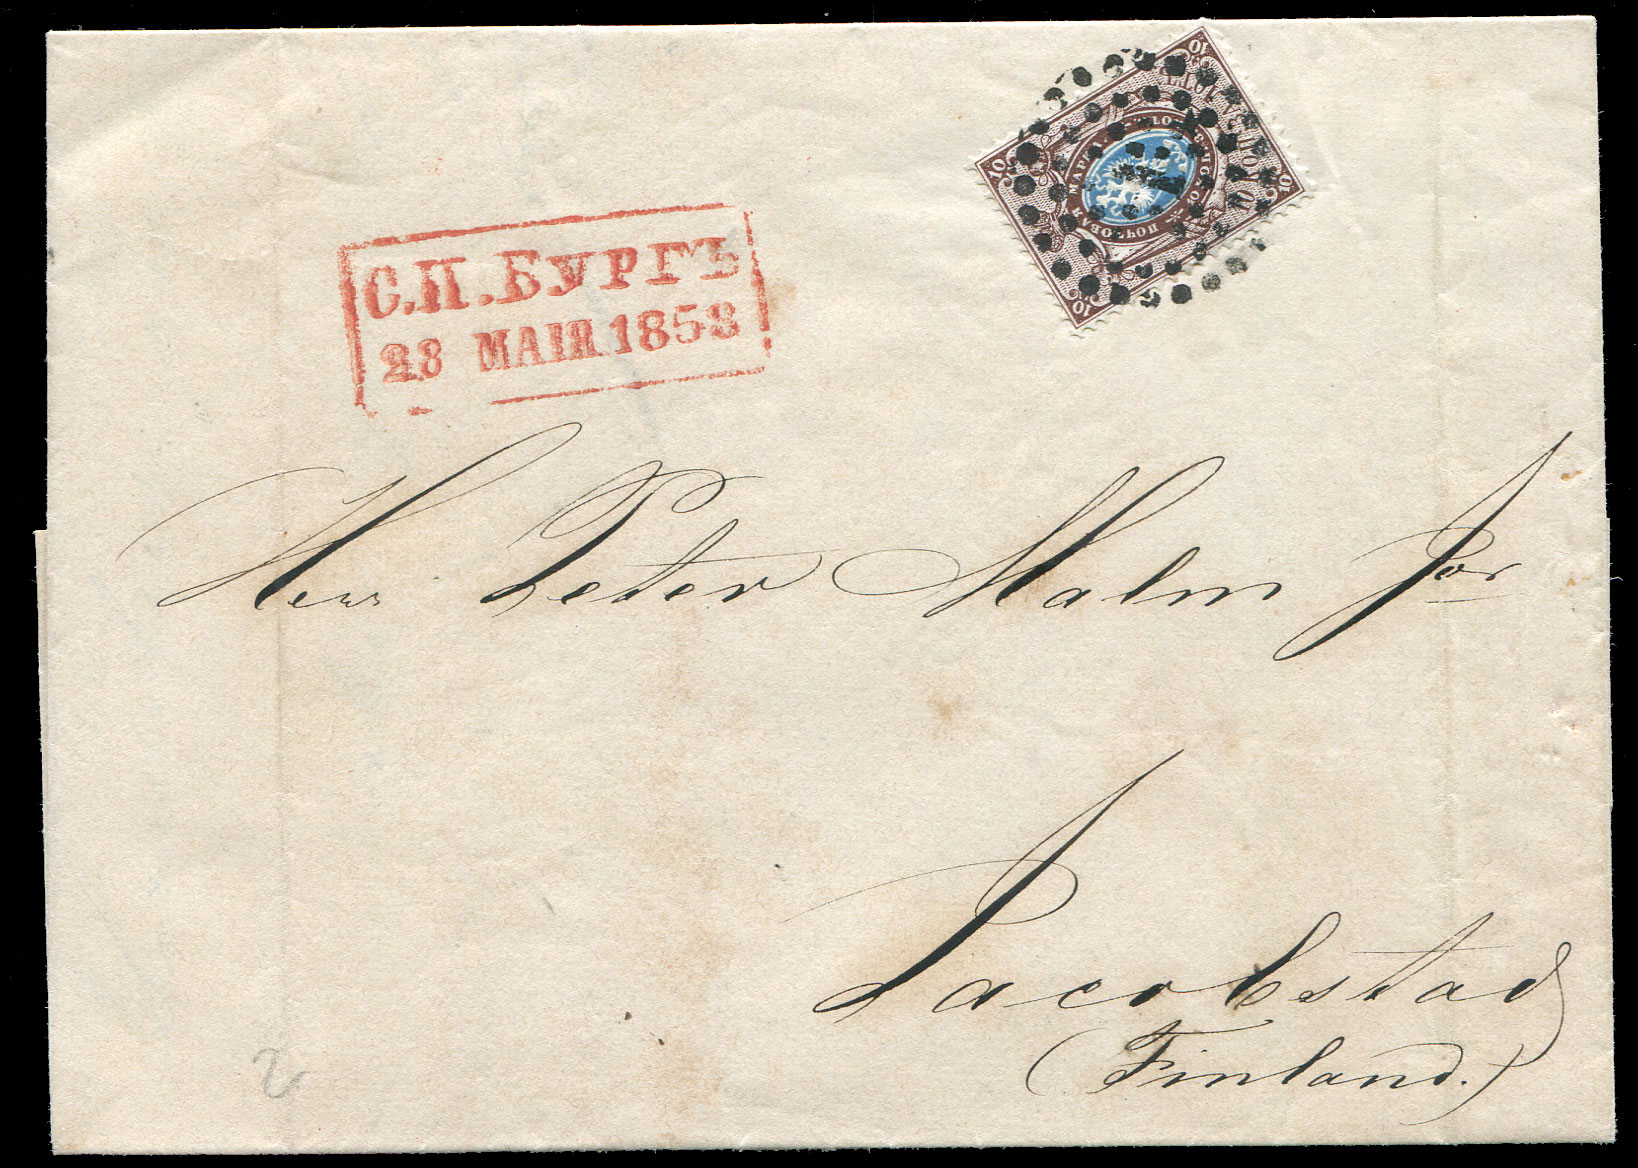 С.П.БУРГЪ
28 МАІЯ 1858
Herr Peter Malm Jor
Jacobstad
(Finland.)
10
10
10
10
2